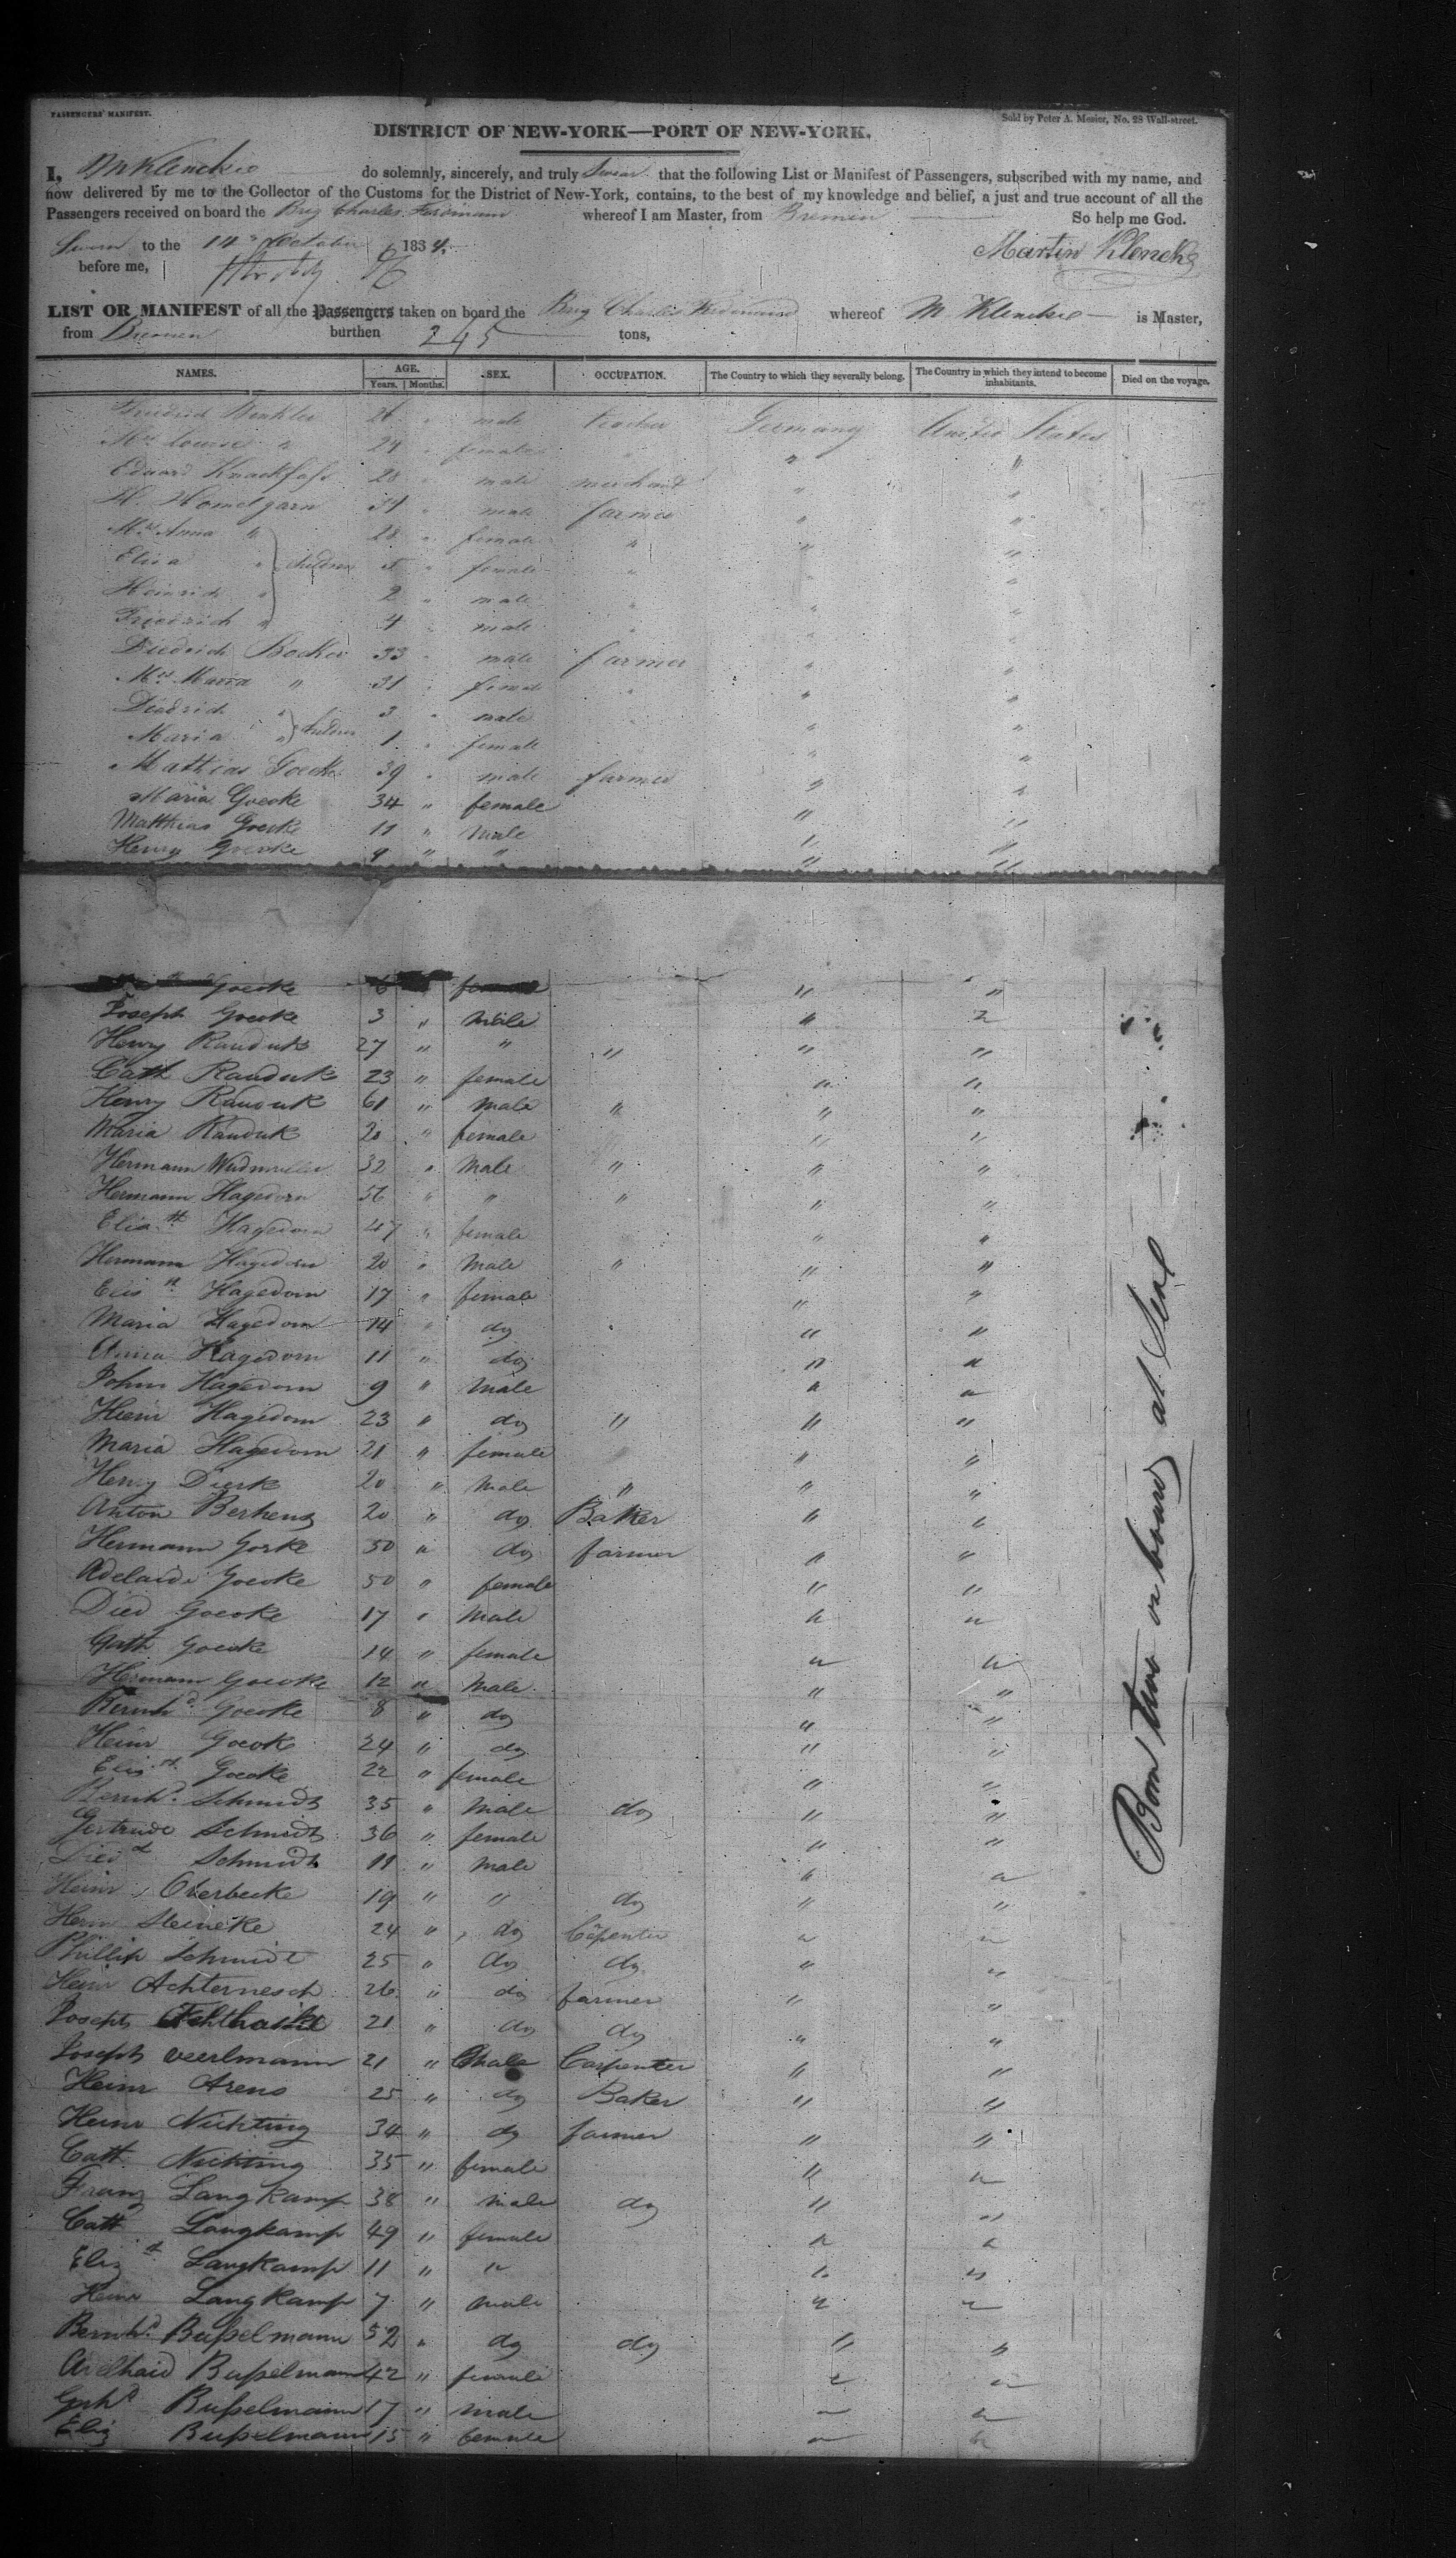 PASSENGERS' MANIFEST.
Sold by Peter A. Mesier, No. 28 Wall-street.
DISTRICT OF NEW-YORK—PORT OF NEW-YORK.
I, M Klencke do solemnly, sincerely, and truly Swear that the following List or Manifest of Passengers, subscribed with my name, and
now delivered by me to the Collector of the Customs for the District of New-York, contains, to the best of my knowledge and belief, a just and true account of all the
Passengers received on board the Brig Charles Ferdinand whereof I am Master, from Bremen So help me God.
Sworn to the 14th October 1834.
before me,
Martin Klencke
LIST OR MANIFEST of all the Passengers taken on board the Brig Charles Ferdinand whereof M Klencke is Master,
from Bremen burthen 245 tons,
NAMES. AGE. SEX. OCCUPATION. The Country to which they severally belong. The Country in which they intend to become inhabitants. Died on the voyage.
Years. Months.
Friedrich Winkler 26 " male teacher Germany United States
Mrs Louise " 24 " female " " "
Eduard Knackfuss 28 " male merchant " "
H. Homelgarn 34 " male farmer " "
Mrs Anna " 28 " female " " "
Elisa " children 5 " female " " "
Heinrich " 2 " male " " "
Friedrich " 4 " male " " "
Diedrich Boeker 33 " male farmer " "
Mrs Maria " 31 " female " " "
Diedrich " children 3 " male " "
Maria " 1 " female " "
Mathias Goecke 39 " male farmer " "
Maria Goecke 34 " female " "
Matthias Goecke 11 " male " "
Henry Goecke 9 " " " "
Goecke 6 female " "
Joseph Goecke 3 " male " "
Henry Randuk 27 " " " " "
Cath Randuk 23 " female " "
Henry Randuk 61 " male " " "
Maria Randuk 20 " female " "
Hermann Wudmuller 32 " male " " "
Hermann Hagedorn 56 " " " " "
Elisa th Hagedorn 47 " female " "
Hermann Hagedorn 20 " male " " "
Elis th Hagedorn 17 " female " "
Maria Hagedorn 14 " do " "
Anna Hagedorn 11 " do " "
Johm Hagedorn 9 " male " "
Heinr Hagedorn 23 " do " " "
Maria Hagedorn 21 " female " "
Henry Dierk 20 " male " " "
Anton Berhens 20 " do Baker " "
Hermann Goske 50 " do farmer " "
Adelaide Goecke 50 " female " "
Died Goecke 17 " male " "
Cath Goecke 14 " female " "
Hermann Goecke 12 " male " "
Bernhd. Goecke 8 " do " "
Heinr Goecke 24 " do " "
Elis th Goecke 22 " female " "
Bernhd. Schmidt 35 " male do " "
Gertrude Schmidt 36 " female " "
Died Schmidt 11 " male " "
Heinr Overbecke 19 " " do " "
Herm Steineke 24 " do Carpenter " "
Phillip Schmidt 25 " do do " "
Heinr Achternesch 26 " do farmer " "
Joseph 21 " do do " "
Joseph Veerlmann 21 " Male Carpenter " "
Heinr Arens 25 " do Baker " "
Heinr Nichting 34 " do farmer " "
Cath Nichting 35 " female " "
Franz Langkamp 38 " male do " "
Cath Langkamp 49 " female " "
Eliz th Langkamp 11 " " " "
Heinr Langkamp 7 " male " "
Bernhd. Bußelmann 52 " do do " "
Adelhaid Bußelmann 42 " female " "
Gerhd Bußelmann 17 " male " "
Eliz Bußelmann 15 " female " "
Born two on board at Seal